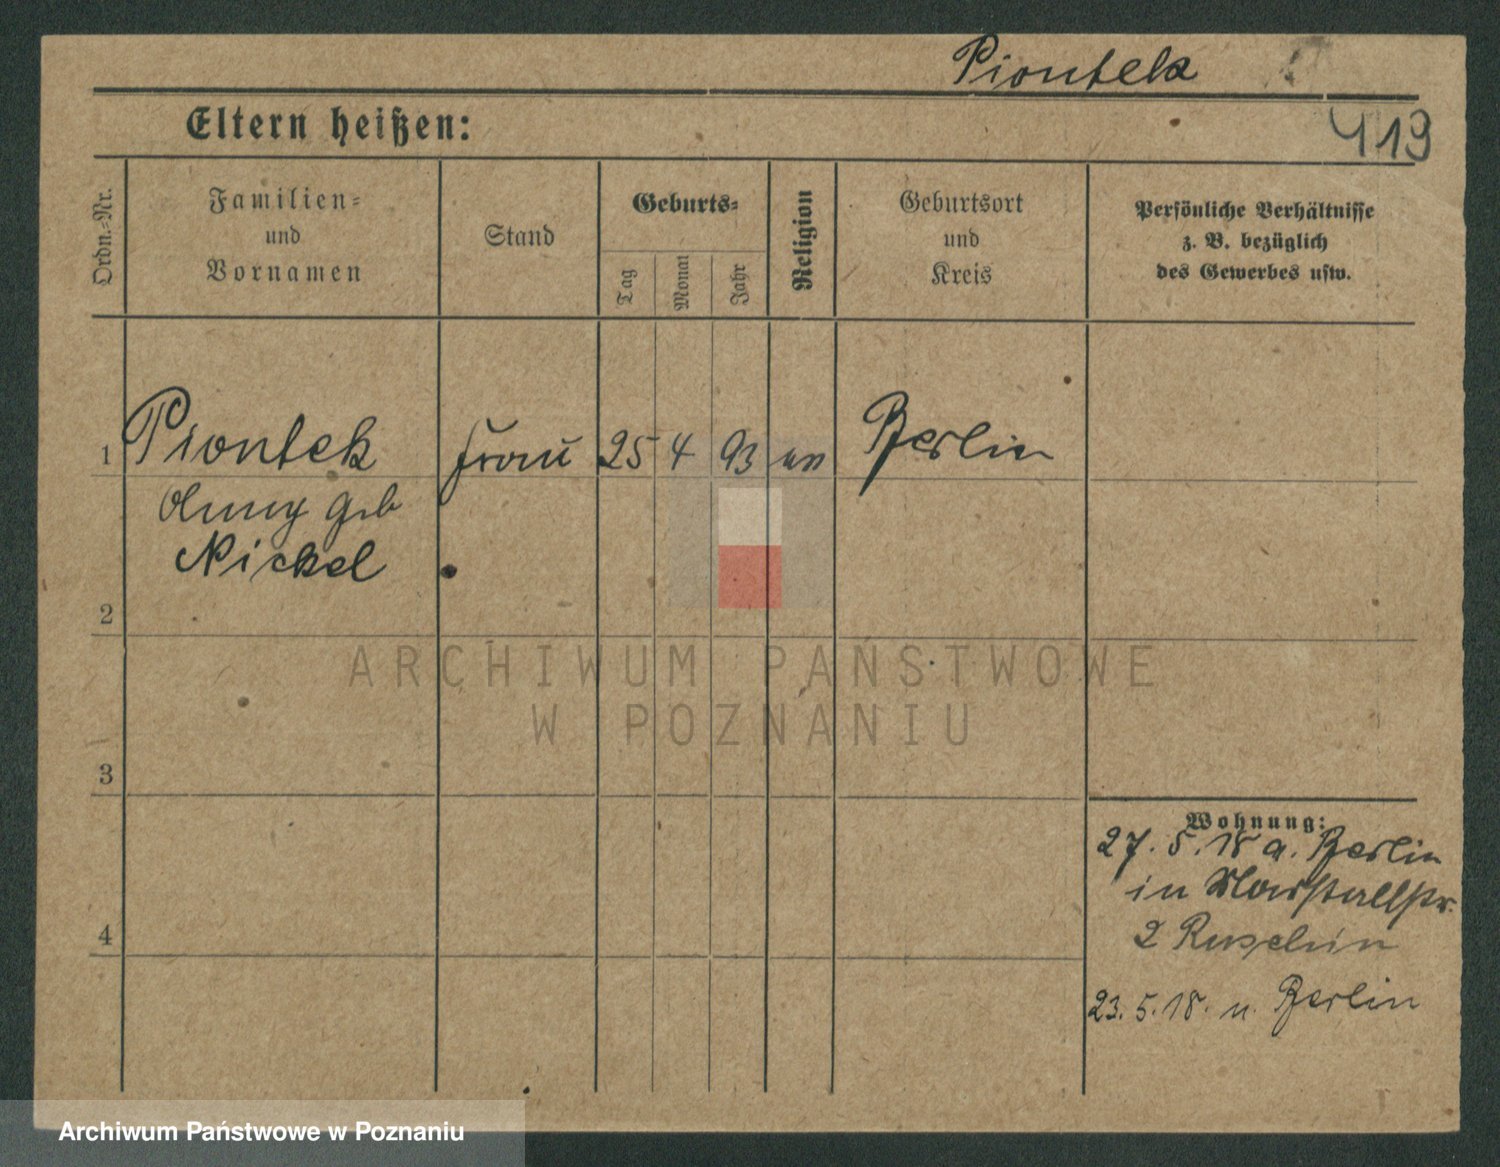 Piontek
Eltern heißen:
419
Ordn.=Nr.
Familien=
und
Vornamen
Stand
Geburts=
Tag
Monat
Jahr
Religion
Geburtsort
und
Kreis
Persönliche Verhältnisse
z. B. bezüglich
des Gewerbes usw.
1 Piontek Frau 25 4 93 Berlin
geb
Nickel
2
ARCHIWUM PAŃSTWOWE
W POZNANIU
3
Wohnung:
27. 5. 18 a. Berlin
in Marstallstr.
2
4
23. 5. 18. n. Berlin
Archiwum Państwowe w Poznaniu